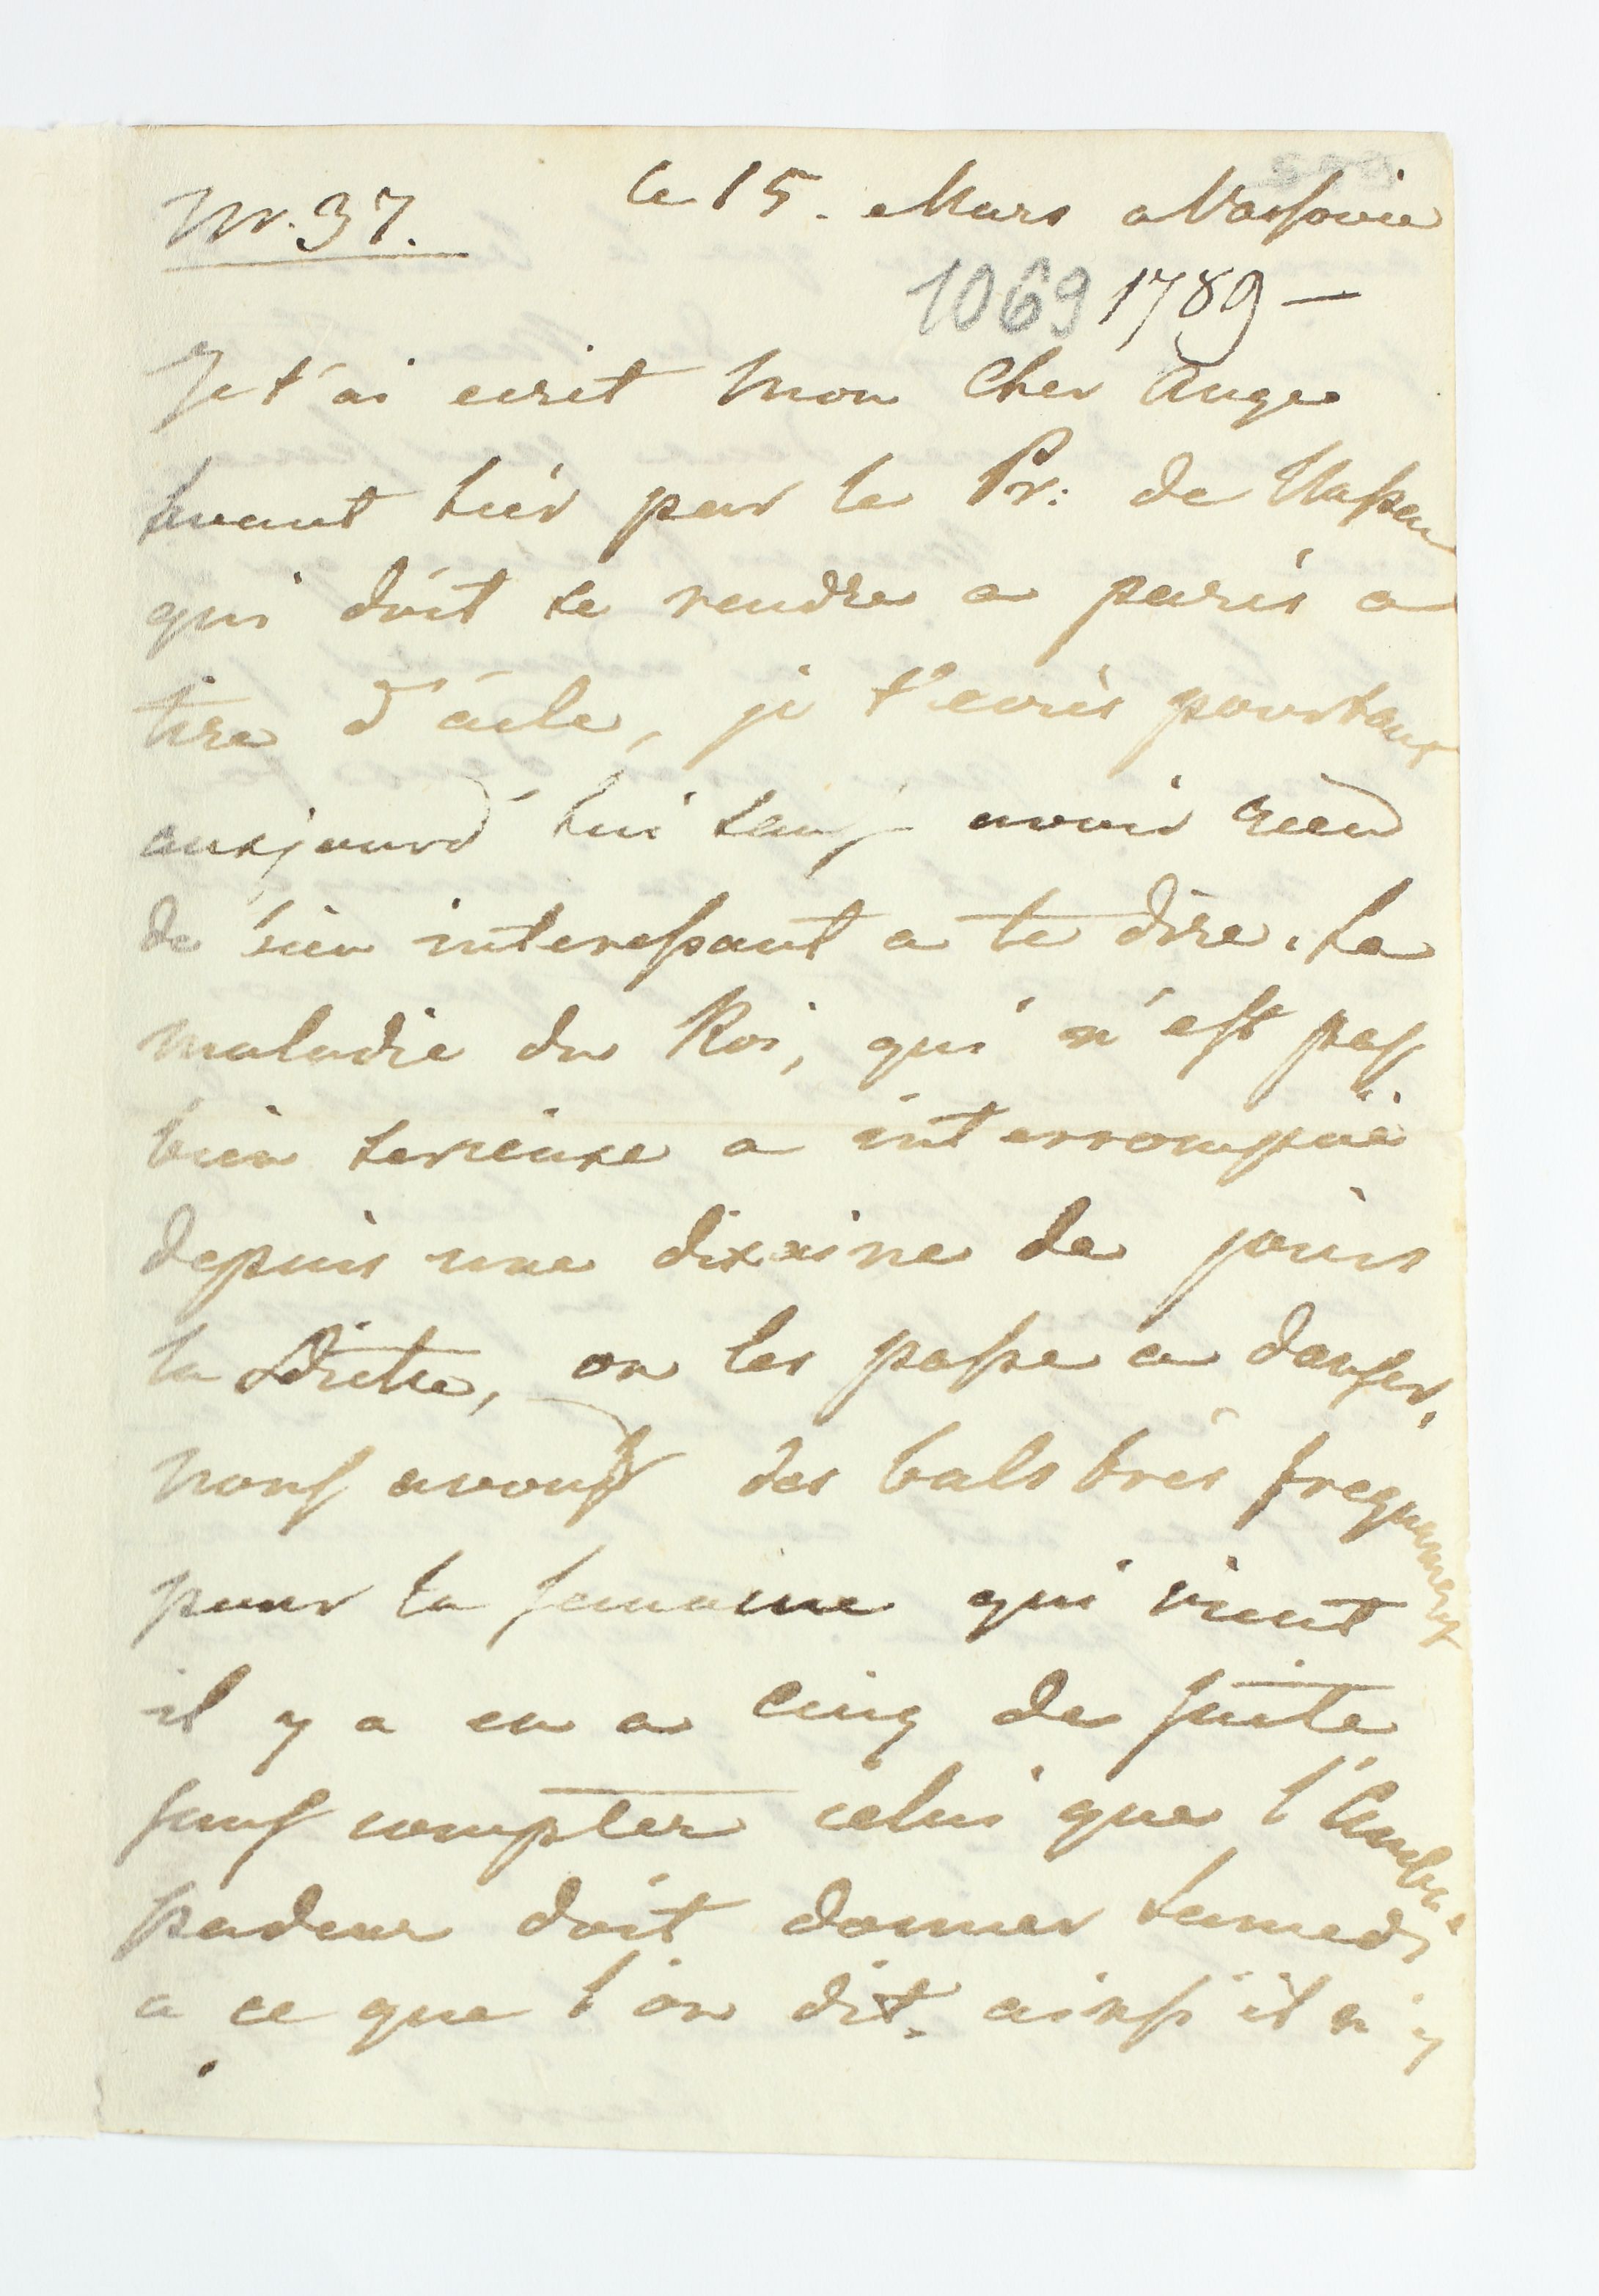 Nr. 37. le 15. Mars a Varsovie
1069 1789 —
Je t'ai ecrit mon Cher Ange
avant hier par le Pr: de Nassau
qui doit se rendre a paris a
tire d'aile, je t'ecris pourtant
aujourd'hui sans avoir rien
de bien interessant a te dire. La
maladie du Roi, qui n'est pas
bien serieuse a interrompüe
depuis une dixaine de jours
la Diette, on les passe a danser.
nous avons des bals tres frequemment
pour la semaine qui vient
il y a en a cinq de suite
sans compter celui que l'Ambas
sadeur doit donner samedi
a ce que l'on dit. ainsi il n'y